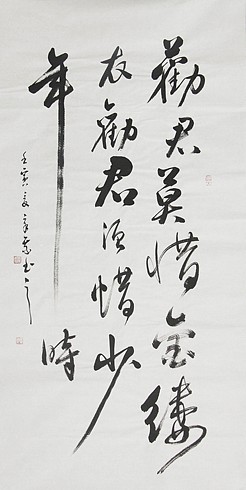 勸君莫惜金縷
衣勸君須惜少
年時
壬寅夏